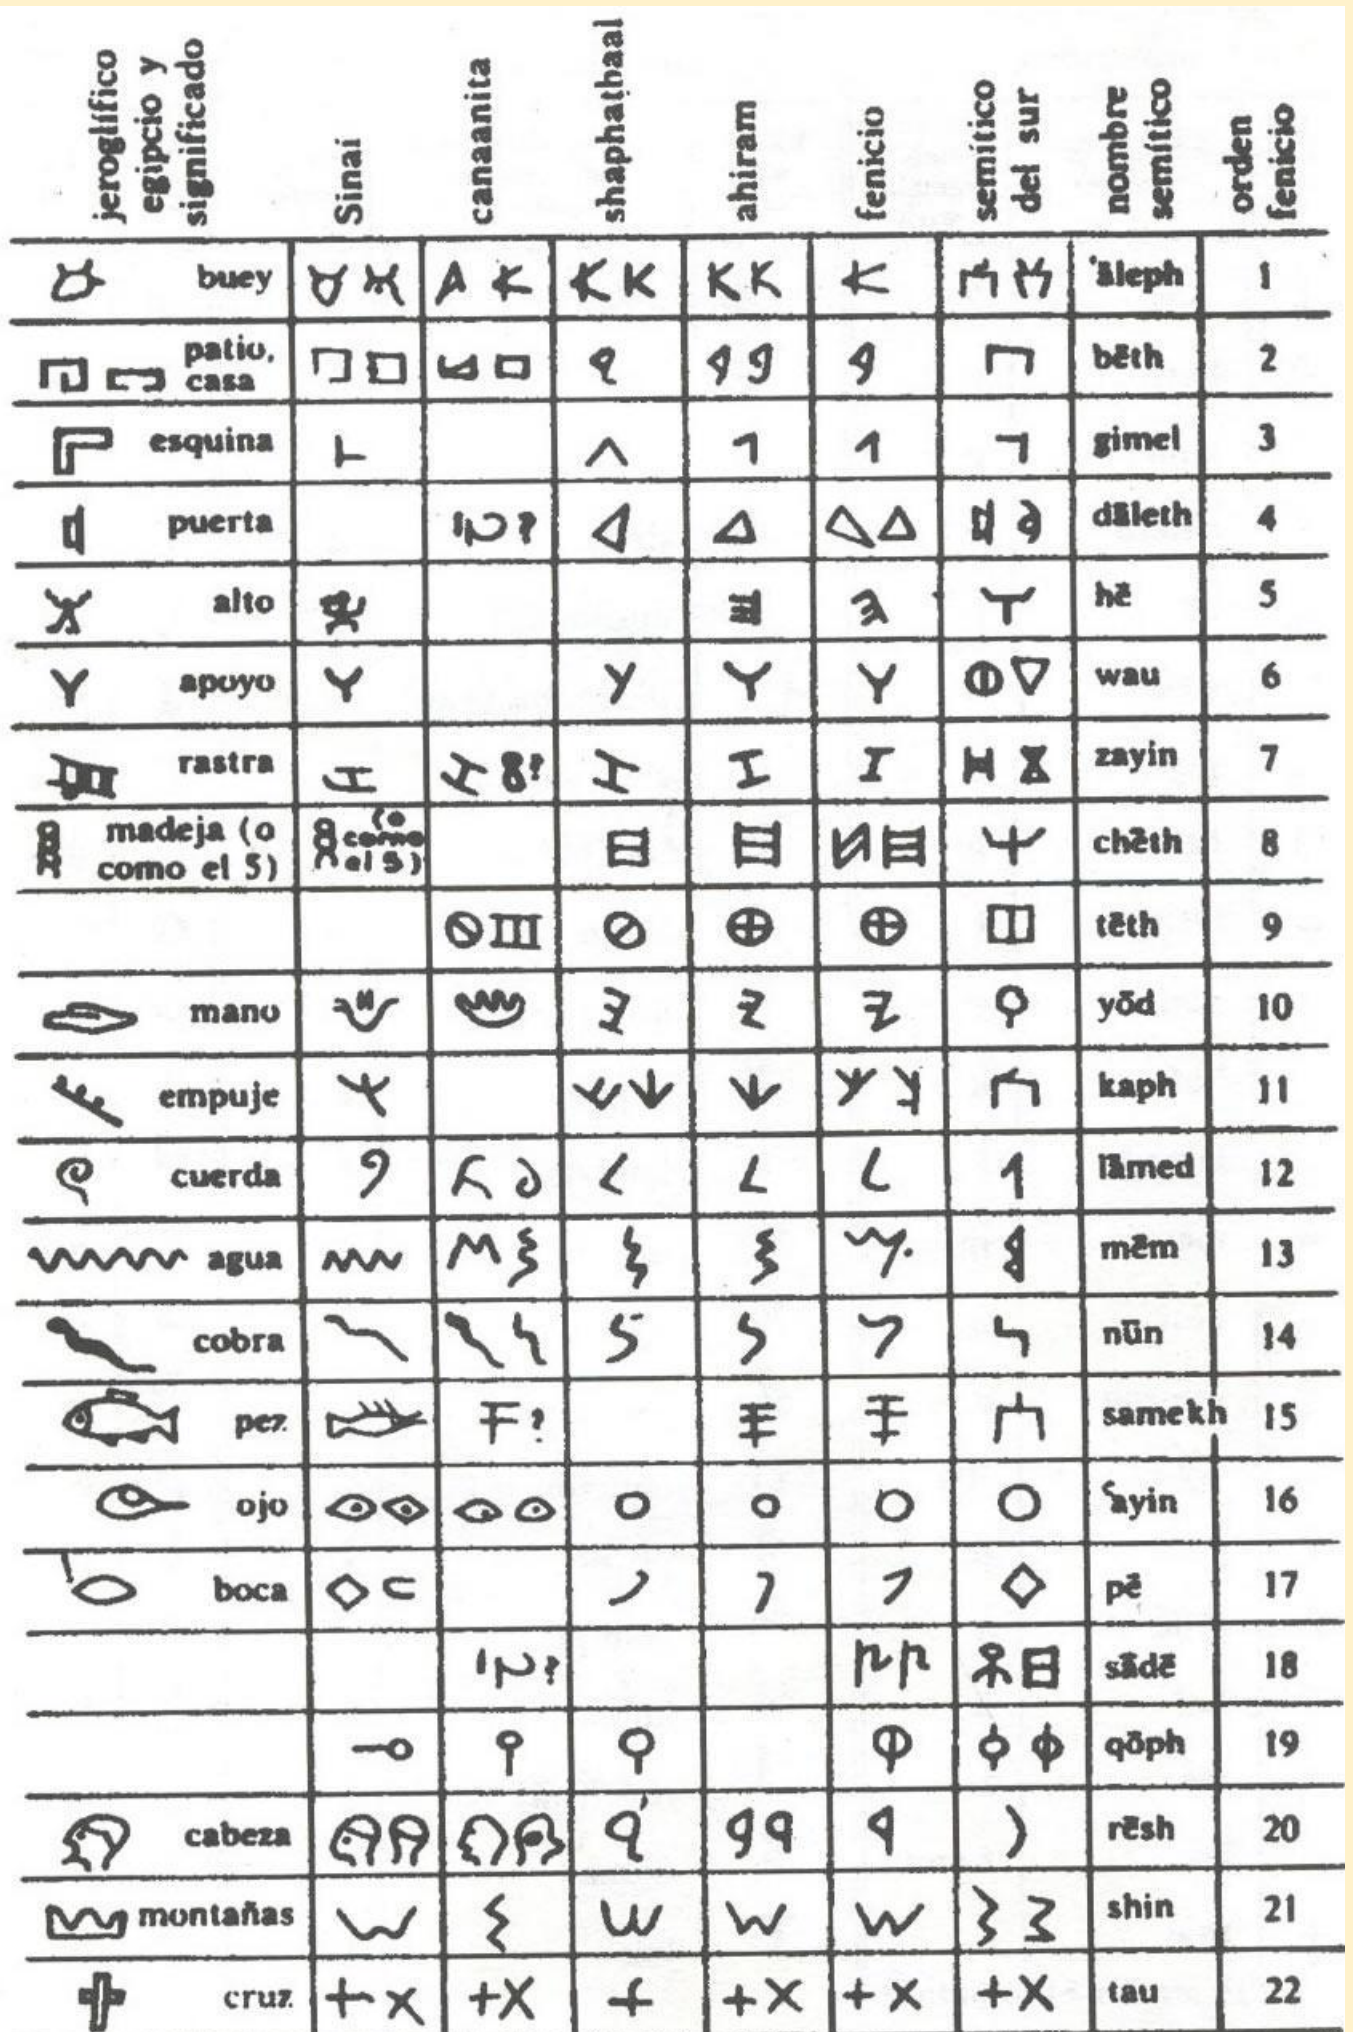 jeroglífico egipcio y significado
Sinai
canaanita
shaphaṭbaal
ahiram
fenicio
semítico del sur
nombre semítico
orden fenicio
buey 'āleph 1
patio, casa bēth 2
esquina gimel 3
puerta ? dāleth 4
alto hē 5
apoyo wau 6
rastra ? zayin 7
madeja (o como el 5) (o como el 5) chēth 8
tēth 9
mano yōd 10
empuje kaph 11
cuerda lāmed 12
agua mēm 13
cobra nūn 14
pez ? samekh 15
ojo ʿayin 16
boca pē 17
? sādē 18
qōph 19
cabeza rēsh 20
montañas shin 21
cruz tau 22